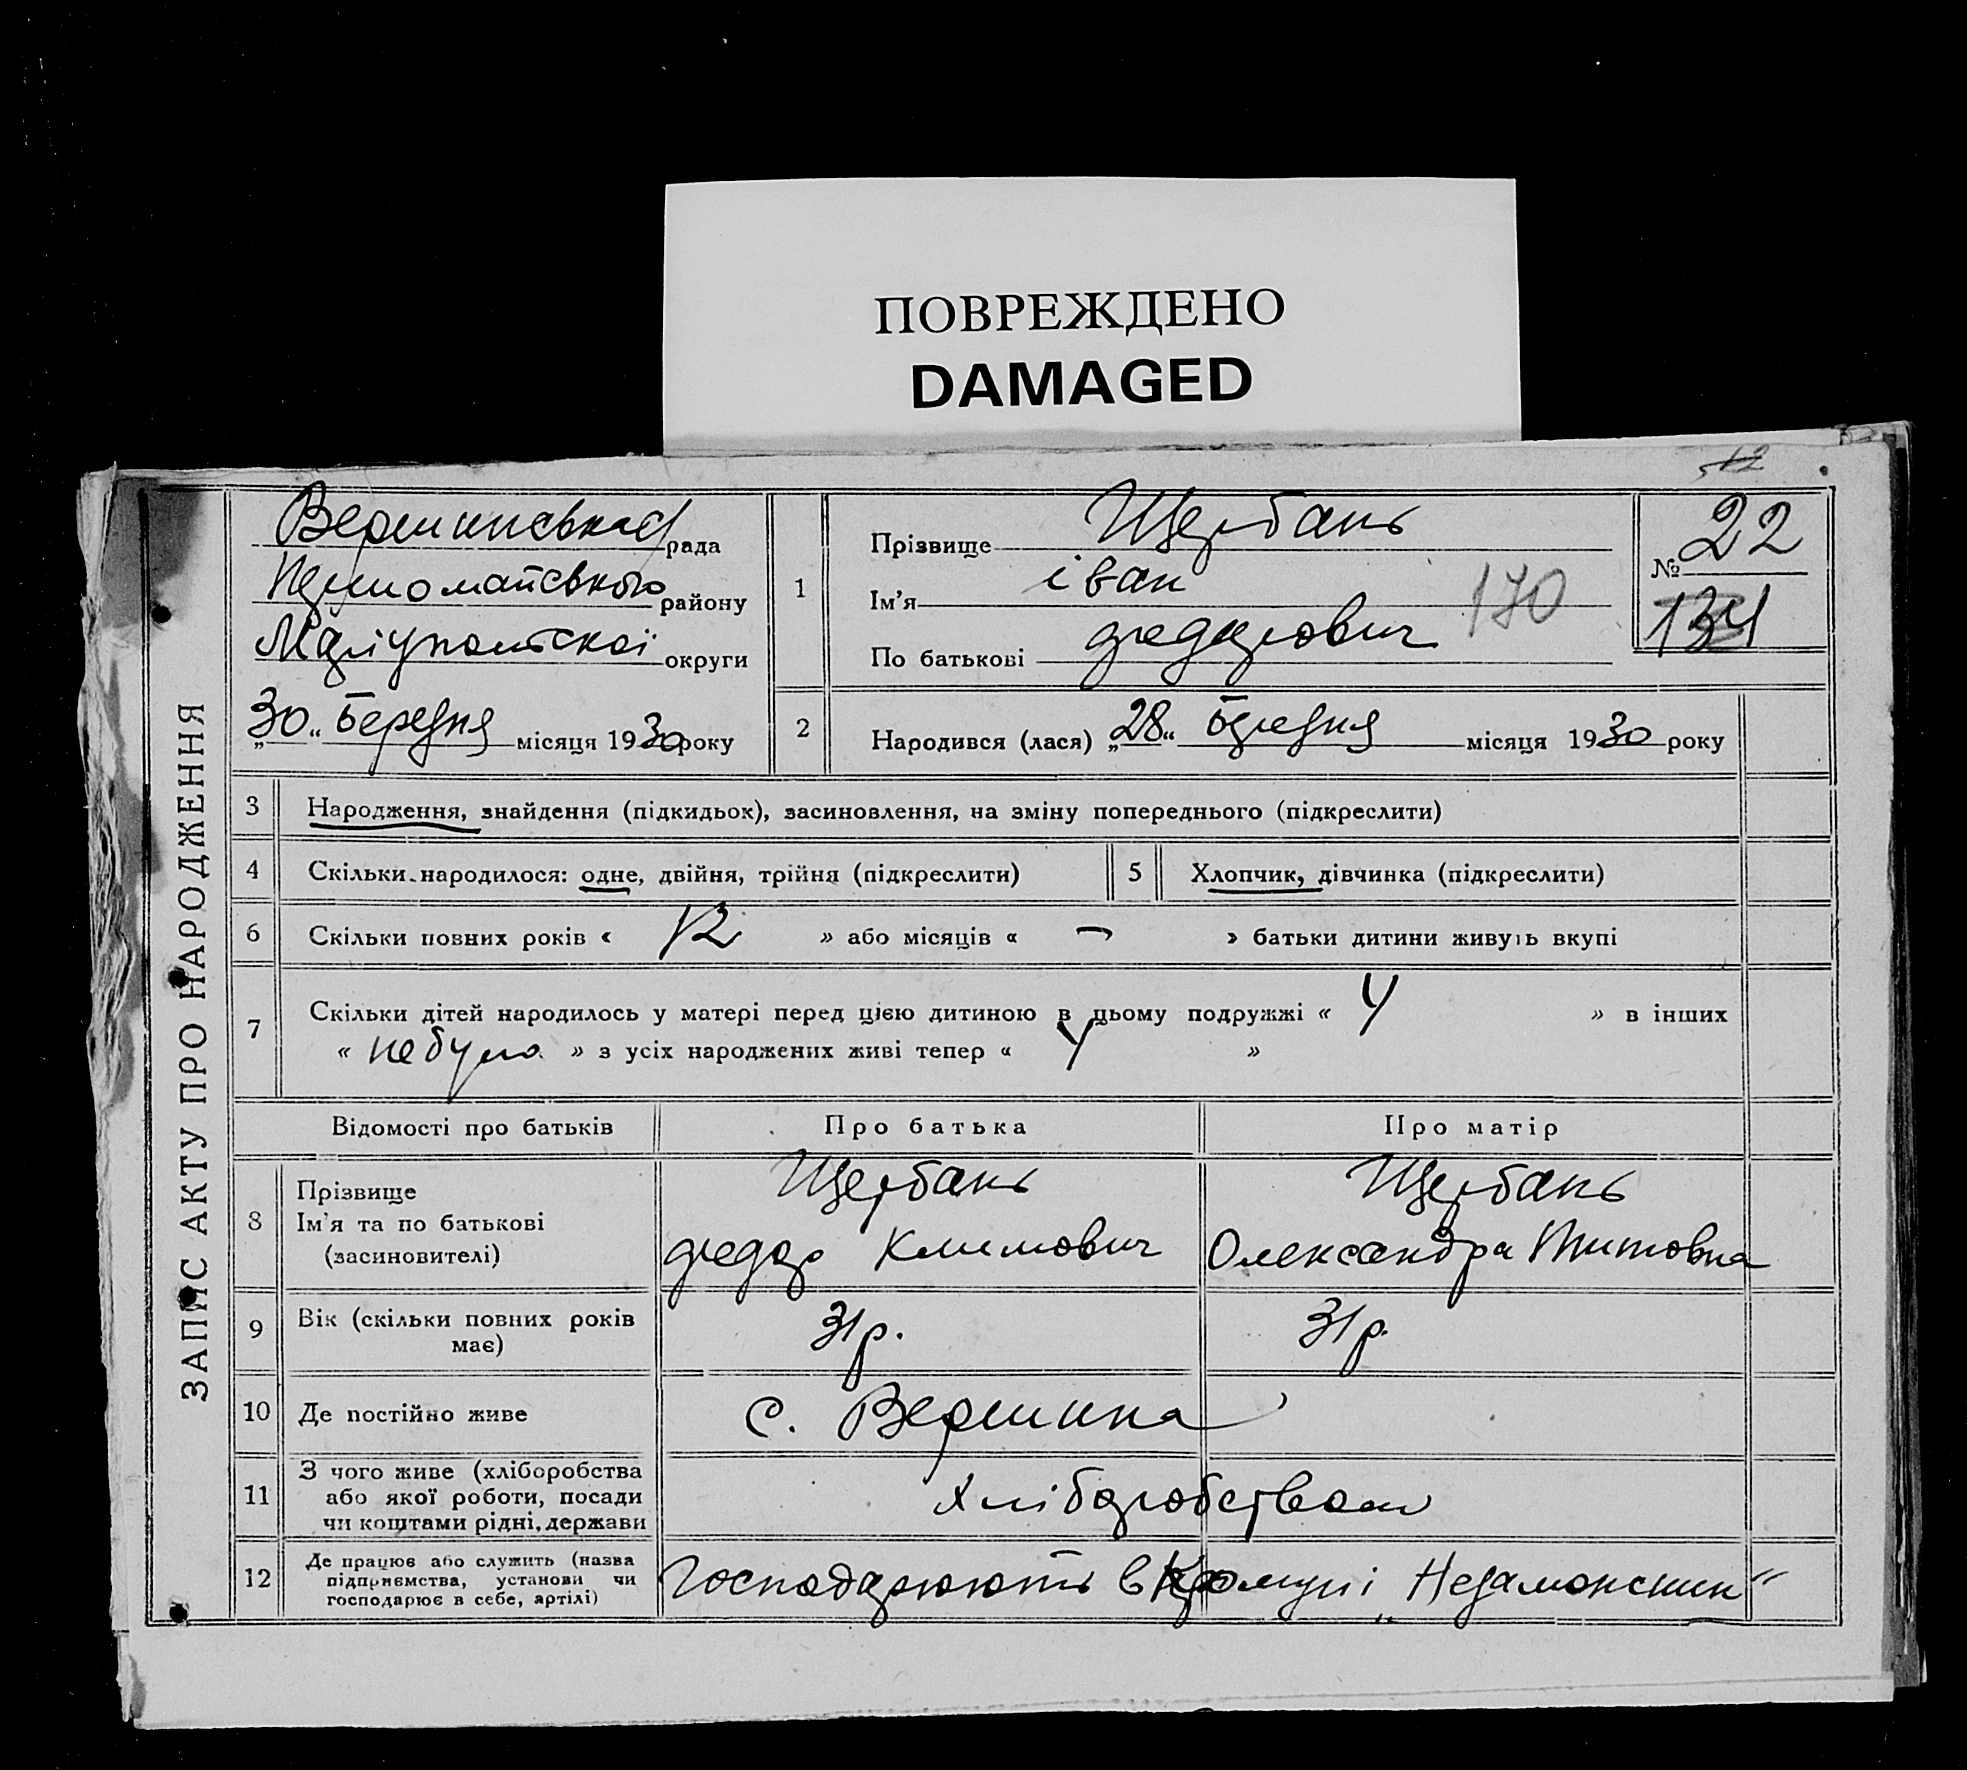 ПОВРЕЖДЕНО
DAMAGED
ЗАПИС АКТУ ПРО НАРОДЖЕННЯ
12
Вершинської рада
району
Маріупольської округи
„30“ Березня місяця 1930 року
1
Прізвище Щербань
Ім’я іван
170
По батькові федорович
№ 22
134
2
Народився (лася) „28“ Березня місяця 1930 року
3
Народження, знайдення (підкидьок), засиновлення, на зміну попереднього (підкреслити)
4
Скільки народилося: одне, двійня, трійня (підкреслити)
5
Хлопчик, дівчинка (підкреслити)
6
Скільки повних років « 12 » або місяців « — » батьки дитини живуть вкупі
7
Скільки дітей народилось у матері перед цією дитиною в цьому подружжі « 4 » в інших
« небуло » з усіх народжених живі тепер « 4 »
Відомості про батьків
Про батька
Про матір
8
Прізвище
Ім’я та по батькові
(засиновителі)
Щербань
федор Климович
Щербань
Олександра Титовна
9
Вік (скільки повних років
має)
31 р.
31 р.
10
Де постійно живе
с. Вершина
11
З чого живе (хліборобства
або якої роботи, посади
чи коштами рідні, держави
Хліборобством
12
Де працює або служить (назва
підприємства, установи чи
господарює в себе, артілі)
Господарюють в Комуні „Незаможник“